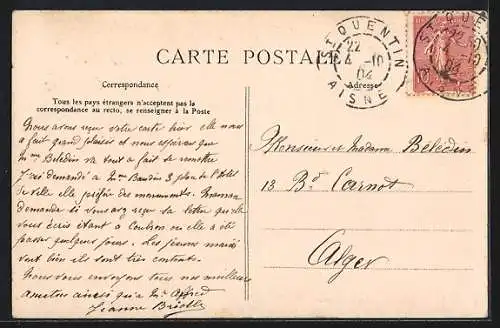 CARTE POSTALE
ST QUENTIN
22
4 -10
04
AISNE
Correspondance
Adresse
Tous les pays étrangers n'acceptent pas la
correspondance au recto, se renseigner à la Poste
Nous avons reçu votre carte hier elle nous
a fait grand plaisir et nous espérons que
Mme Belédin va tout à fait se remettre
J'ai demandé à Mr Baudin 3 place de l'Hôtel
de Ville elle préfère des monuments. Maman
demande si vous avez reçu la lettre qu'elle
vous écrit étant à où elle a été
passer quelques jours. Les jeunes mariés
vont bien ils sont très contents.
Nous vous envoyons tous nos meilleurs
amitiés ainsi qu'à Mr Alfred
Jeanne
Monsieur et Madame Belédin
13 Bd Carnot
Alger